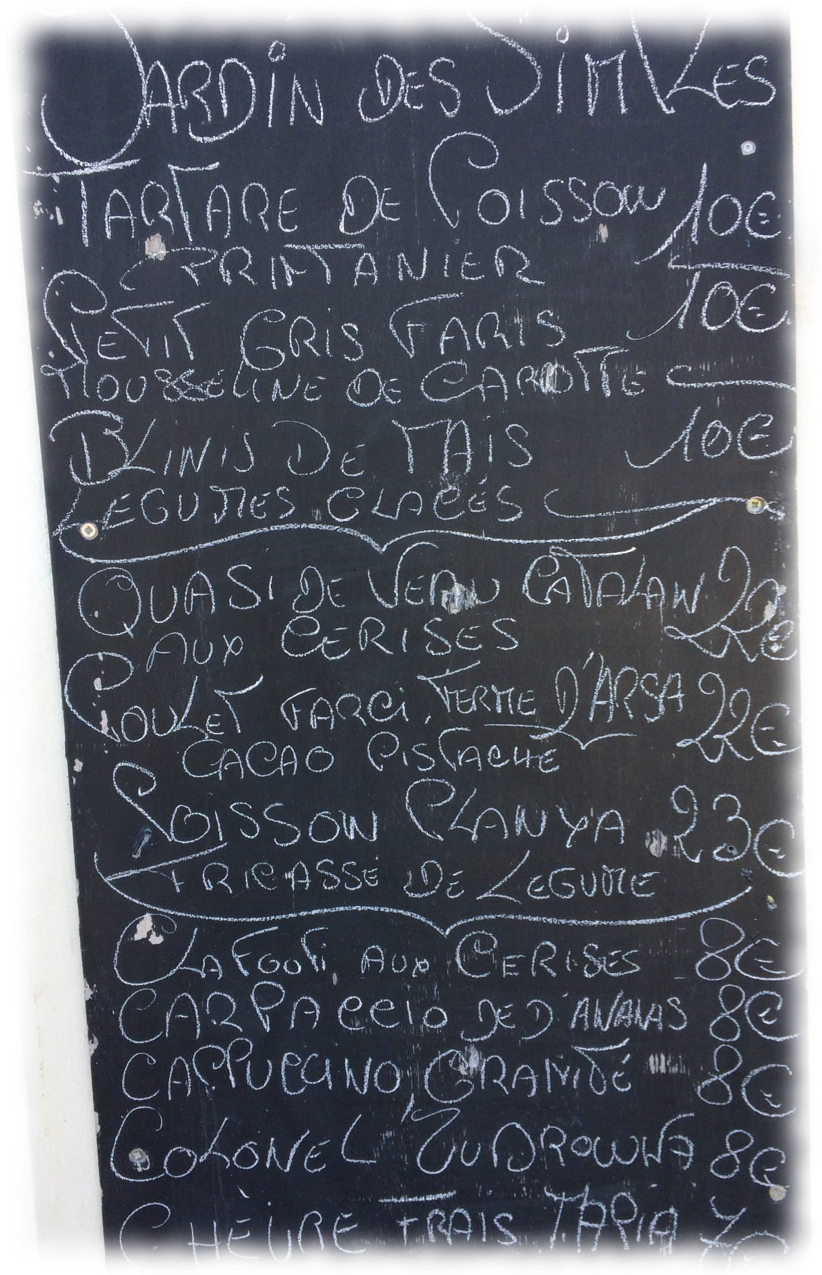 JARDIN DES SIMPLES
TARTARE DE POISSON 10€
PRINTANIER
PETIT GRIS FARIS 10€
MOUSSELINE DE CAROTTE
BLINIS DE MAIS 10€
LEGUMES GLACÉS
QUASI DE VEAU CATALAN 22€
AUX CERISES
POULET FARCI, FERME D'ARSA 22€
CACAO PISTACHE
POISSON PLANXA 23€
FRICASSÉ DE LEGUME
CLAFOUTI AUX CERISES 8€
CARPACCIO DE D'ANANAS 8€
CAPPUCCINO GRANITÉ 8€
COLONEL ZUBROWKA 8€
CHÈVRE FRAIS MARIA